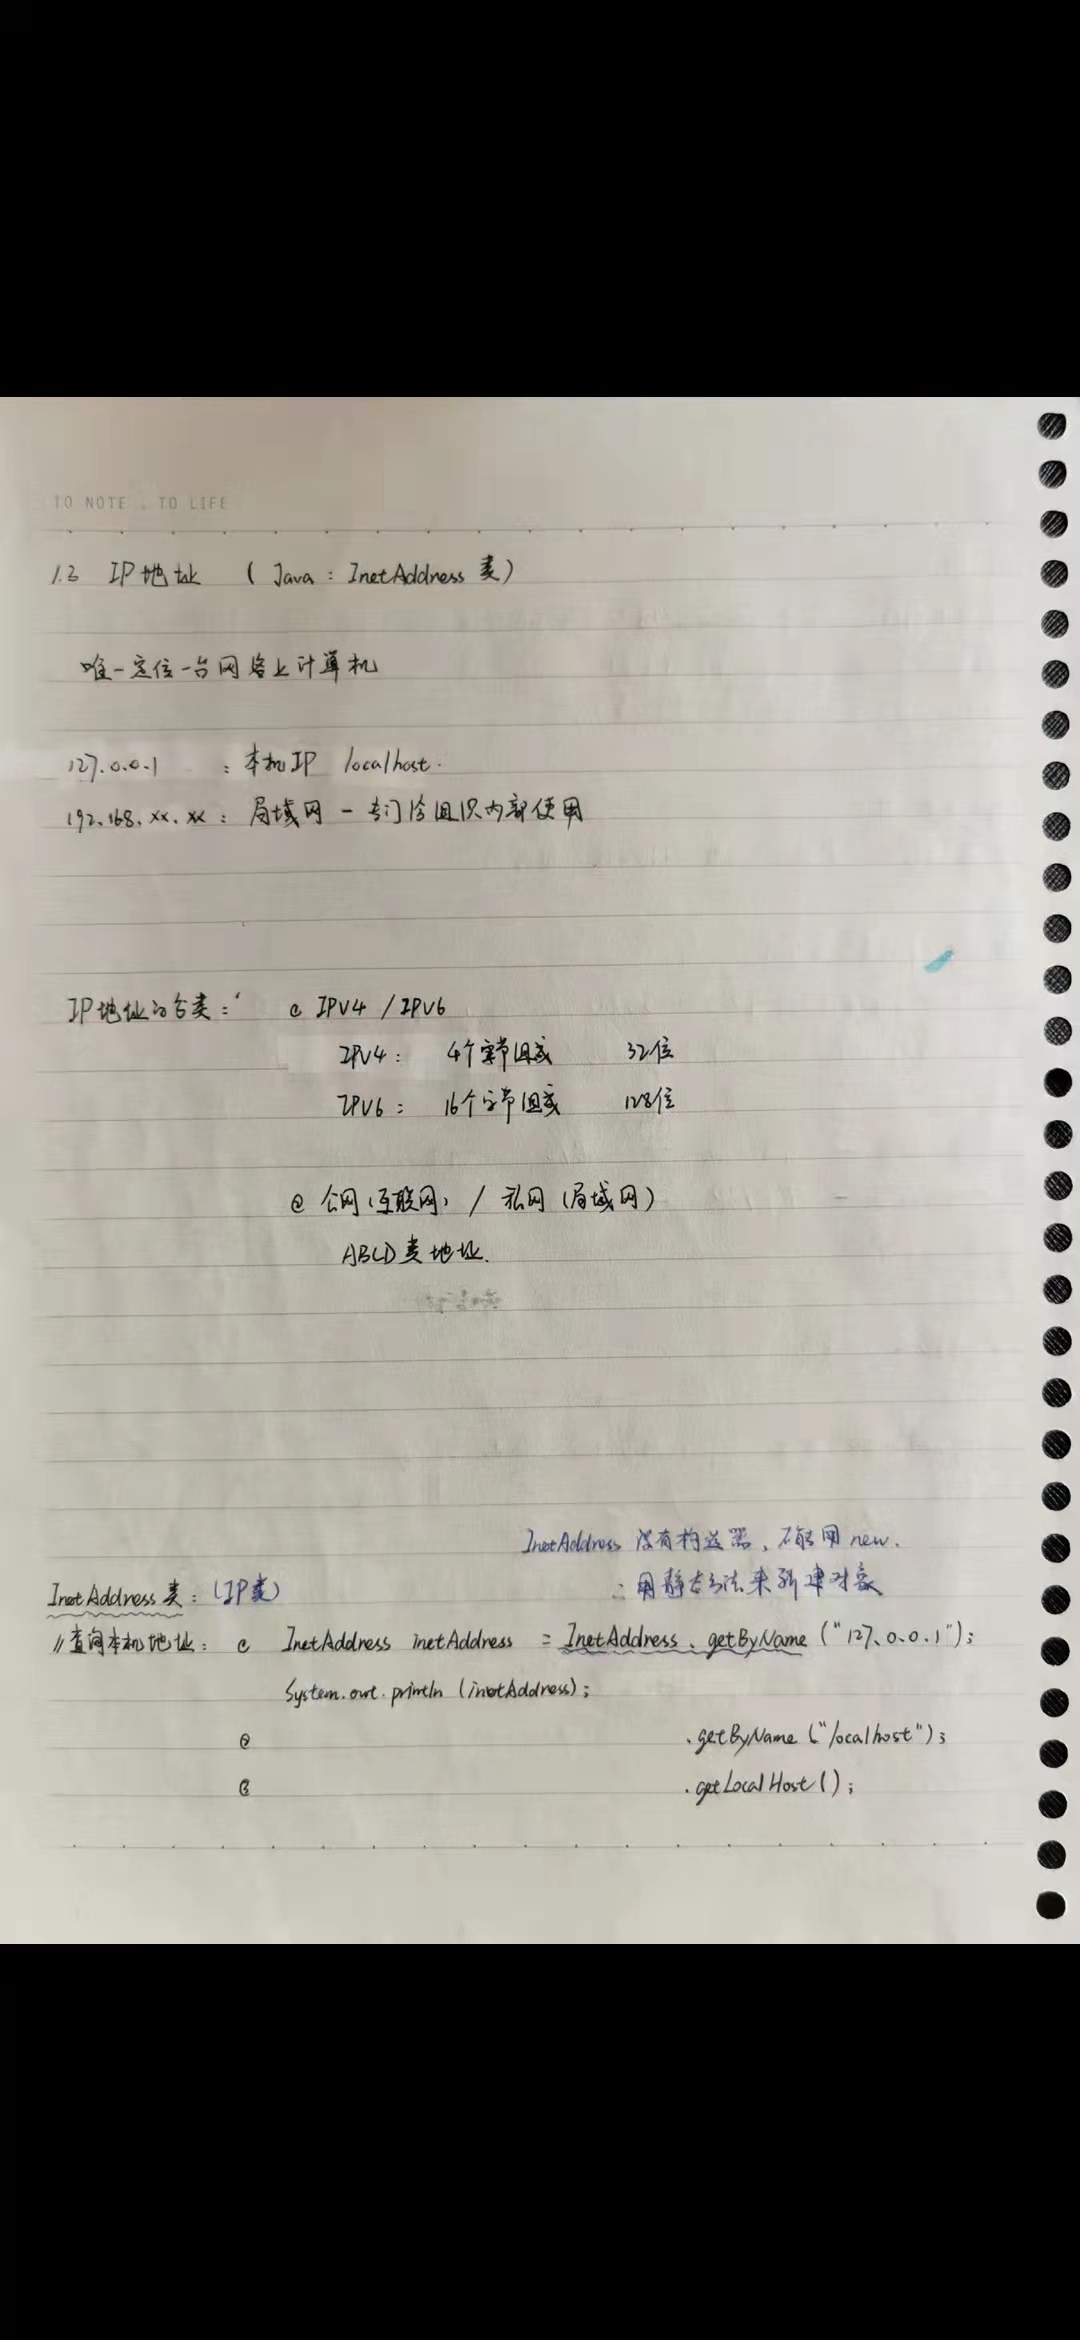 TO NOTE . TO LIFE
1.3 IP地址 ( Java : InetAddress 类 )
唯一定位一台网络上计算机
127.0.0.1 : 本机IP localhost.
192.168.xx.xx : 局域网 - 专门给组织内部使用
IP地址的分类 : ① IPV4 / IPV6
IPV4 : 4个字节组成 32位
IPV6 : 16个字节组成 128位
② 公网 (互联网) / 私网 (局域网)
ABCD类地址.
InetAddress 没有构造器, 不能用 new.
∴ 用静态方法来新建对象
InetAddress 类 : (IP类)
// 查询本机地址 : ① InetAddress inetAddress = InetAddress.getByName ("127.0.0.1");
System.out.println (inetAddress);
② .getByName ("localhost");
③ .getLocalHost ();